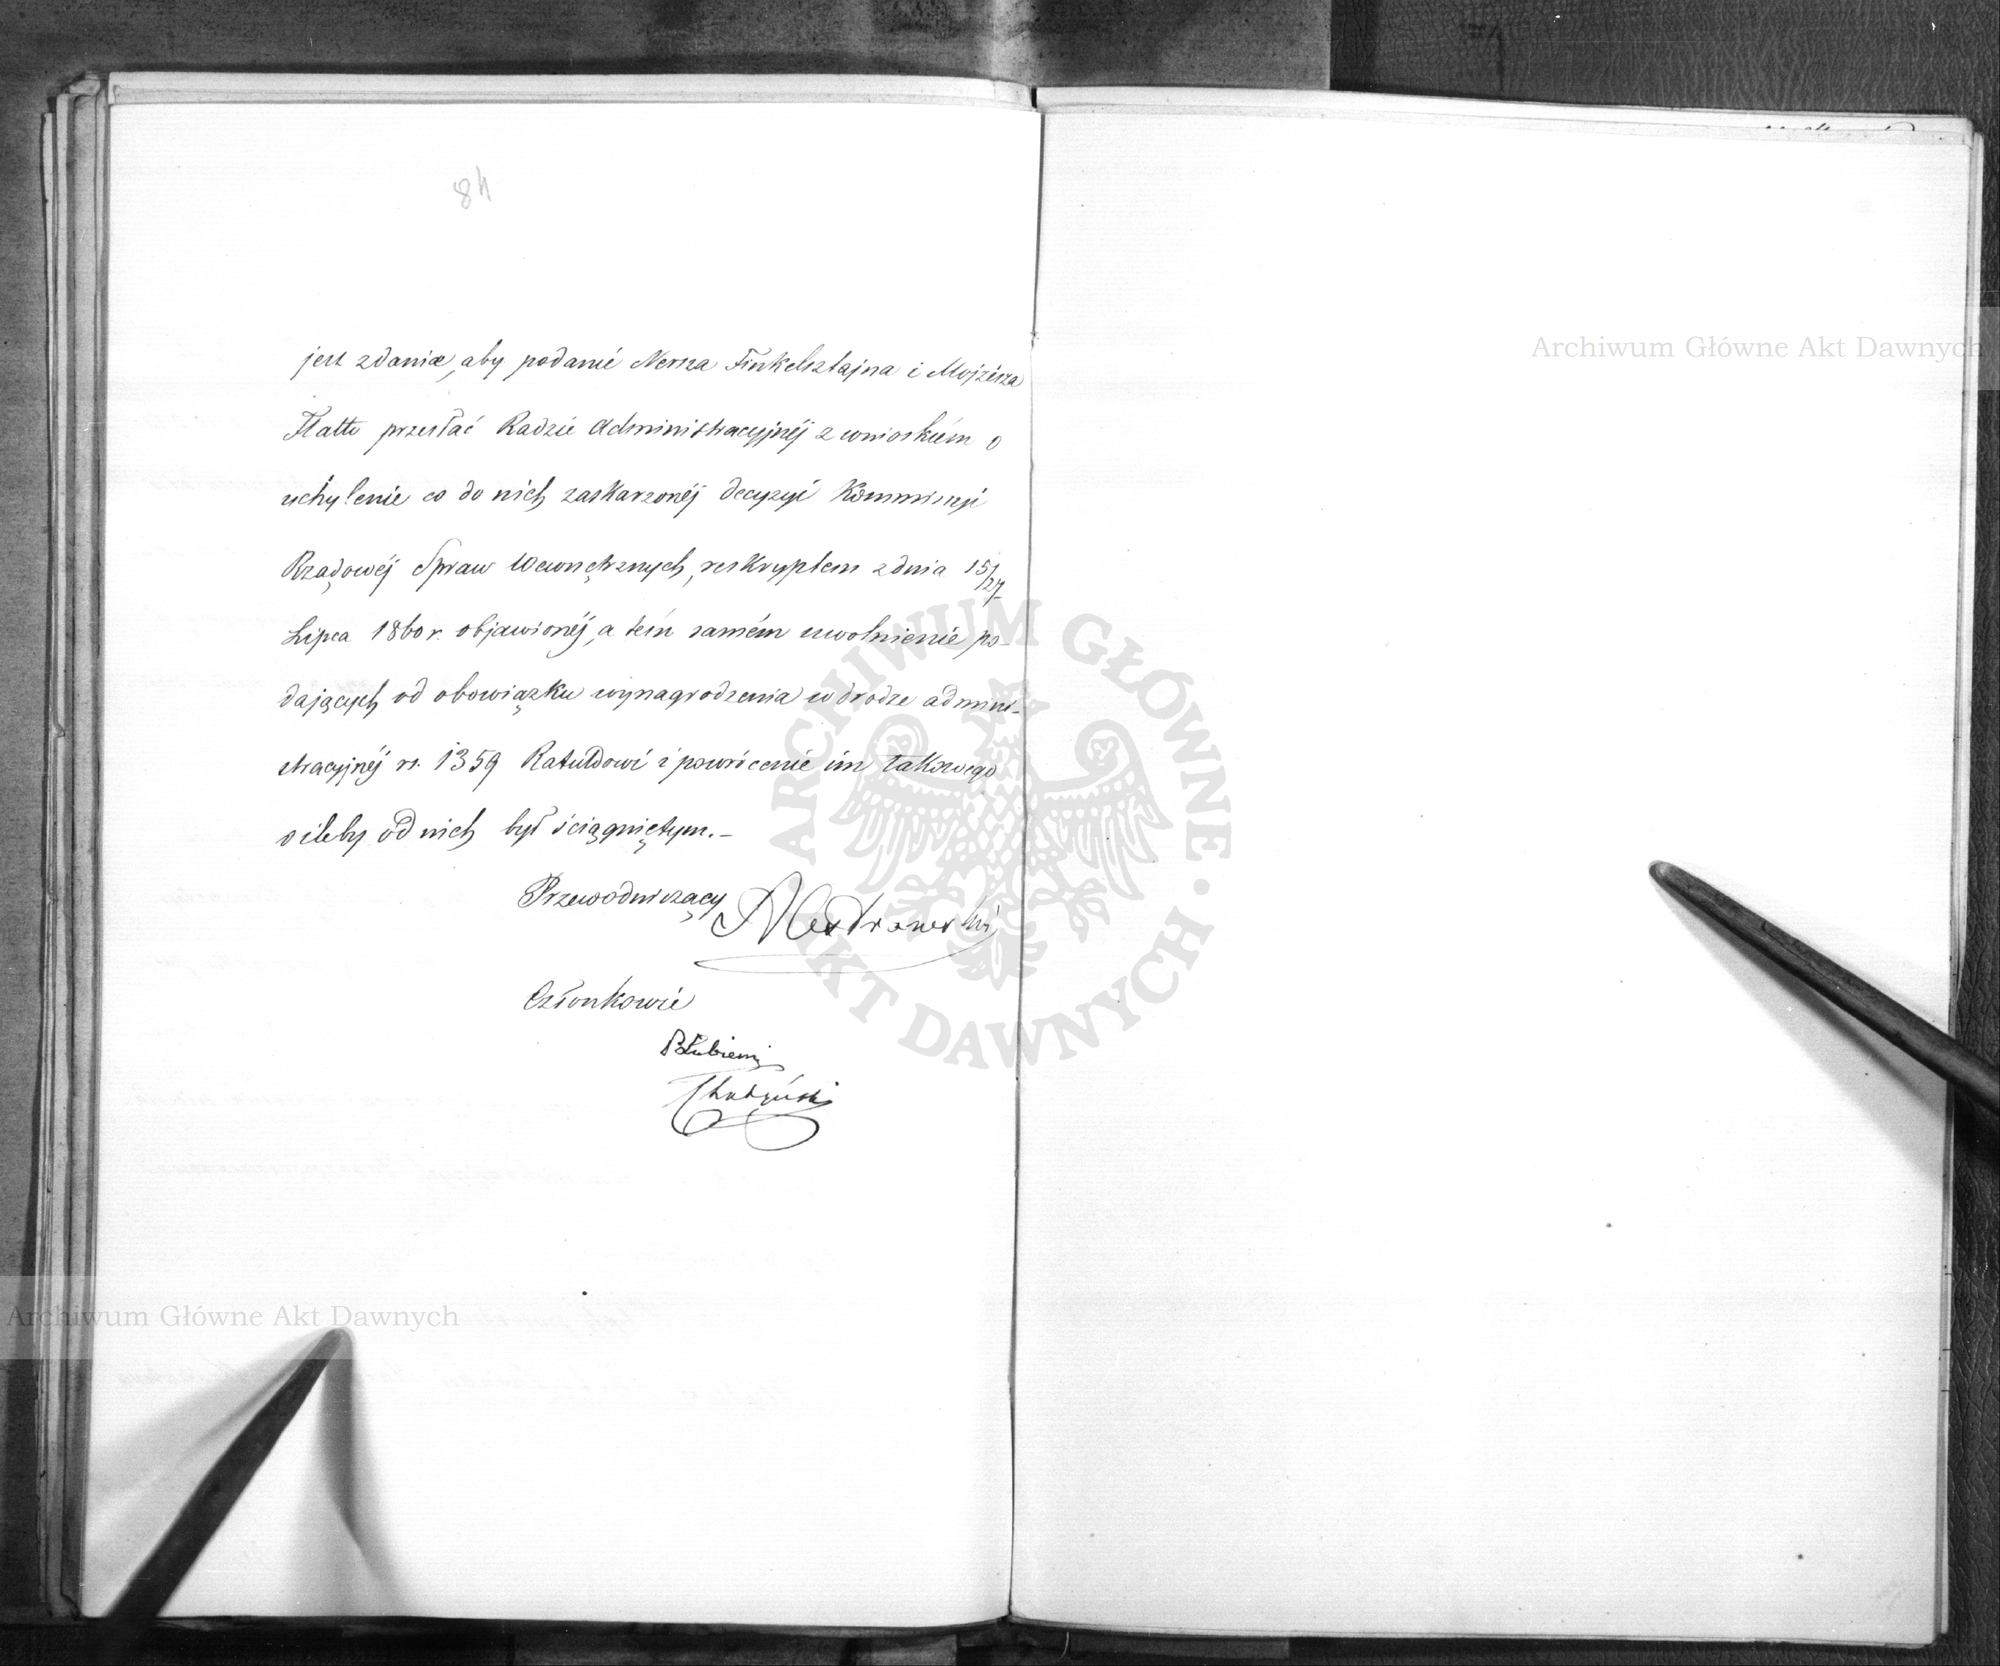 84
jest zdania, aby podanie Nersza Finkelsztajna i Mojżesza
Flatto przesłać Radzie Administracyjnéj z wnioskiem o
uchylenie co do nich zaskarzonéj decyzyi Kommissyi
Rządowéj Spraw Wewnętrznych, reskryptem z dnia 15/27
Lipca 1860 r. objawionéj, a tém samém uwolnienie po-
dających od obowiązku wynagrodzenia w drodze admini-
stracyjnéj rs. 1359 Ratułdowi i powrócenie im takowego
oileby od nich był ściągniętym. –
Przewodniczący
Członkowie
BŁubieński
Archiwum Główne Akt Dawnych
Archiwum Główne Akt Dawnych
ARCHIWUM GŁÓWNE · AKT DAWNYCH ·